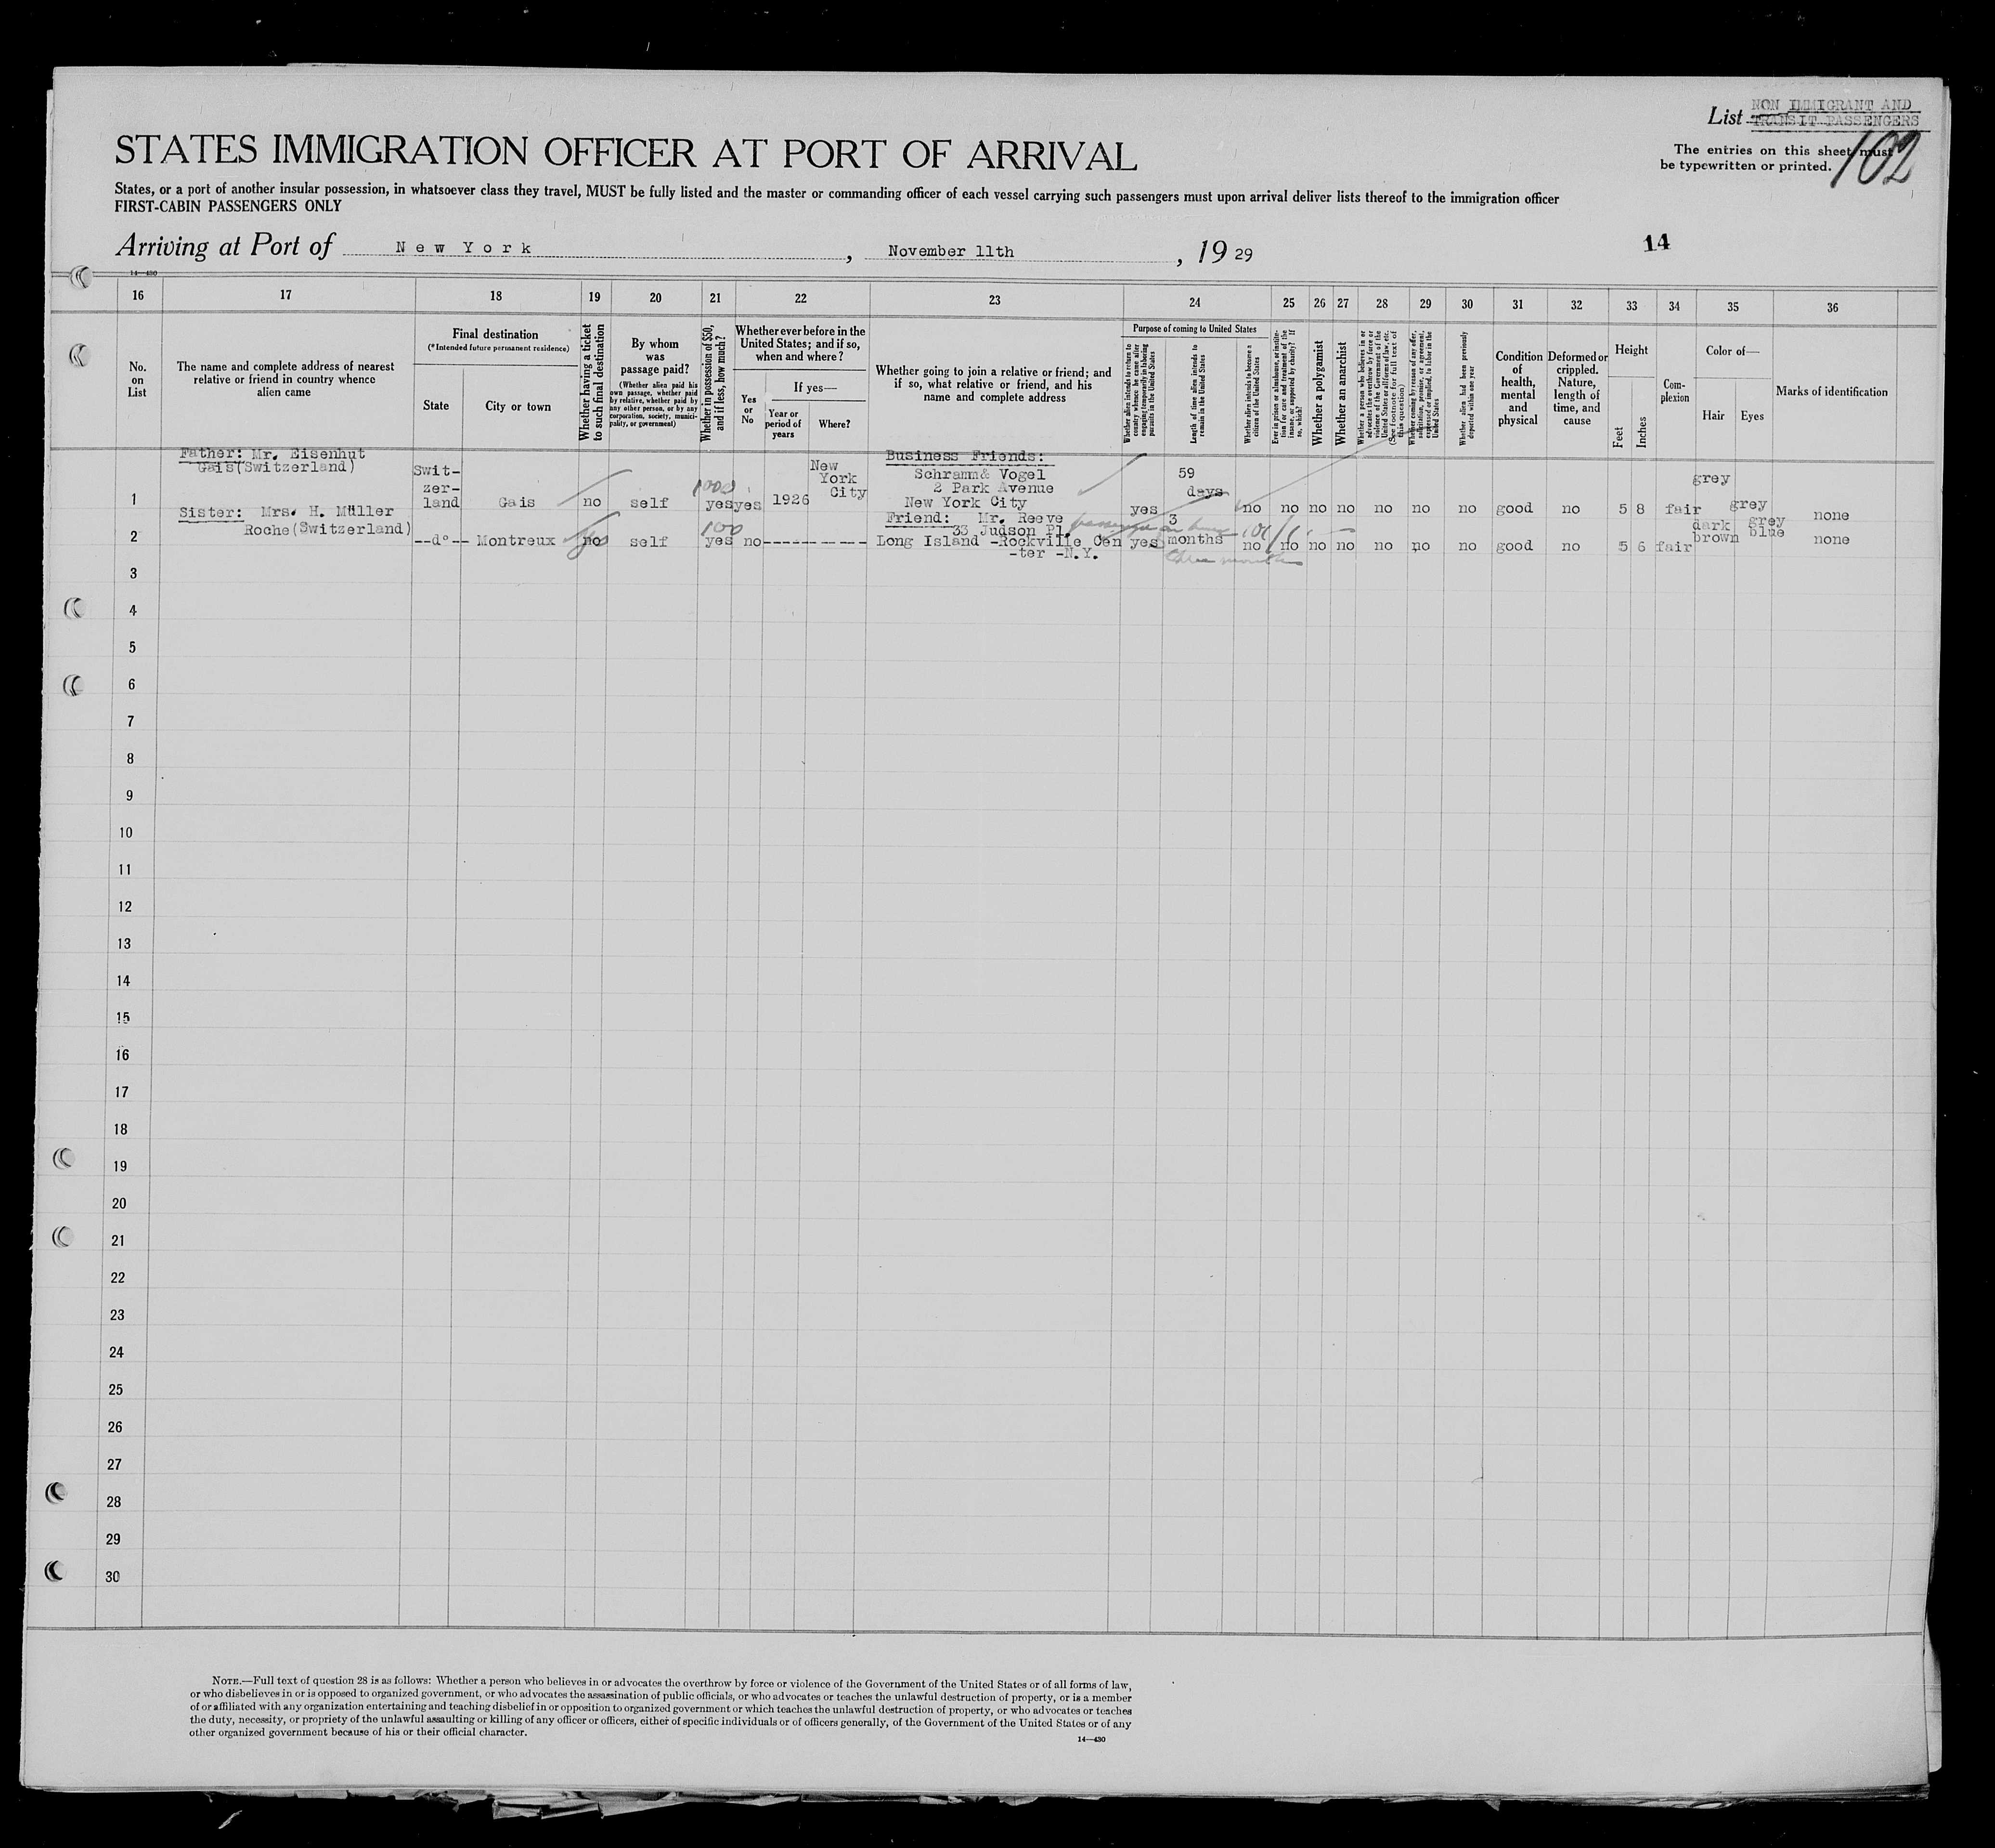 List NON IMMIGRANT AND
TRANSIT PASSENGERS
The entries on this sheet must
be typewritten or printed.
102
STATES IMMIGRATION OFFICER AT PORT OF ARRIVAL
States, or a port of another insular possession, in whatsoever class they travel, MUST be fully listed and the master or commanding officer of each vessel carrying such passengers must upon arrival deliver lists thereof to the immigration officer
FIRST-CABIN PASSENGERS ONLY
Arriving at Port of New York, November 11th, 19 29
14
14—430
16 17 18 19 20 21 22 23 24 25 26 27 28 29 30 31 32 33 34 35 36
No. on List
The name and complete address of nearest
relative or friend in country whence
alien came
Final destination
(*Intended future permanent residence)
State
City or town
Whether having a ticket
to such final destination
By whom
was
passage paid?
(Whether alien paid his
own passage, whether paid
by relative, whether paid by
any other person, or by any
corporation, society, munici-
pality, or government)
Whether in possession of $50,
and if less, how much?
Whether ever before in the
United States; and if so,
when and where?
Yes
or
No
If yes—
Year or
period of
years
Where?
Whether going to join a relative or friend; and
if so, what relative or friend, and his
name and complete address
Purpose of coming to United States
Whether alien intends to return to
country whence he came after
engaging temporarily in laboring
pursuits in the United States
Length of time alien intends to
remain in the United States
Whether alien intends to become a
citizen of the United States
Ever in prison or almshouse, or institu-
tion for care and treatment of the
insane, or supported by charity? If
so, which?
Whether a polygamist
Whether an anarchist
Whether a person who believes in or
advocates the overthrow by force or
violence of the Government of the
United States or all forms of law, etc.
(See footnote for full text of
this question)
Whether coming by reason of any offer,
solicitation, promise, or agreement,
expressed or implied, to labor in the
United States
Whether alien had been previously
deported within one year
Condition
of
health,
mental
and
physical
Deformed or
crippled.
Nature,
length of
time, and
cause
Height
Feet
Inches
Com-
plexion
Color of—
Hair
Eyes
Marks of identification
Father: Mr. Eisenhut
Gais (Switzerland)
1 Swit-
zer-
land Gais no self 1000 yes yes 1926 New
York
City
Business Friends:
Schramm & Vogel
2 Park Avenue
New York City
yes 59
days no no no no no no no good no 5 8 fair grey grey none
Sister: Mrs. H. Müller
Roche (Switzerland)
2 --d°-- Montreux no self 100 yes no
Friend: Mr. Reeve
33 Judson Pl.
Long Island -Rockville Cen
-ter -N.Y.
yes 3
months no no no no no no no good no 5 6 fair dark
brown grey
blue none
three months
3
4
5
6
7
8
9
10
11
12
13
14
15
16
17
18
19
20
21
22
23
24
25
26
27
28
29
30
NOTE.—Full text of question 28 is as follows: Whether a person who believes in or advocates the overthrow by force or violence of the Government of the United States or of all forms of law,
or who disbelieves in or is opposed to organized government, or who advocates the assassination of public officials, or who advocates or teaches the unlawful destruction of property, or is a member
of or affiliated with any organization entertaining and teaching disbelief in or opposition to organized government or which teaches the unlawful destruction of property, or who advocates or teaches
the duty, necessity, or propriety of the unlawful assaulting or killing of any officer or officers, either of specific individuals or of officers generally, of the Government of the United States or of any
other organized government because of his or their official character.
14—430